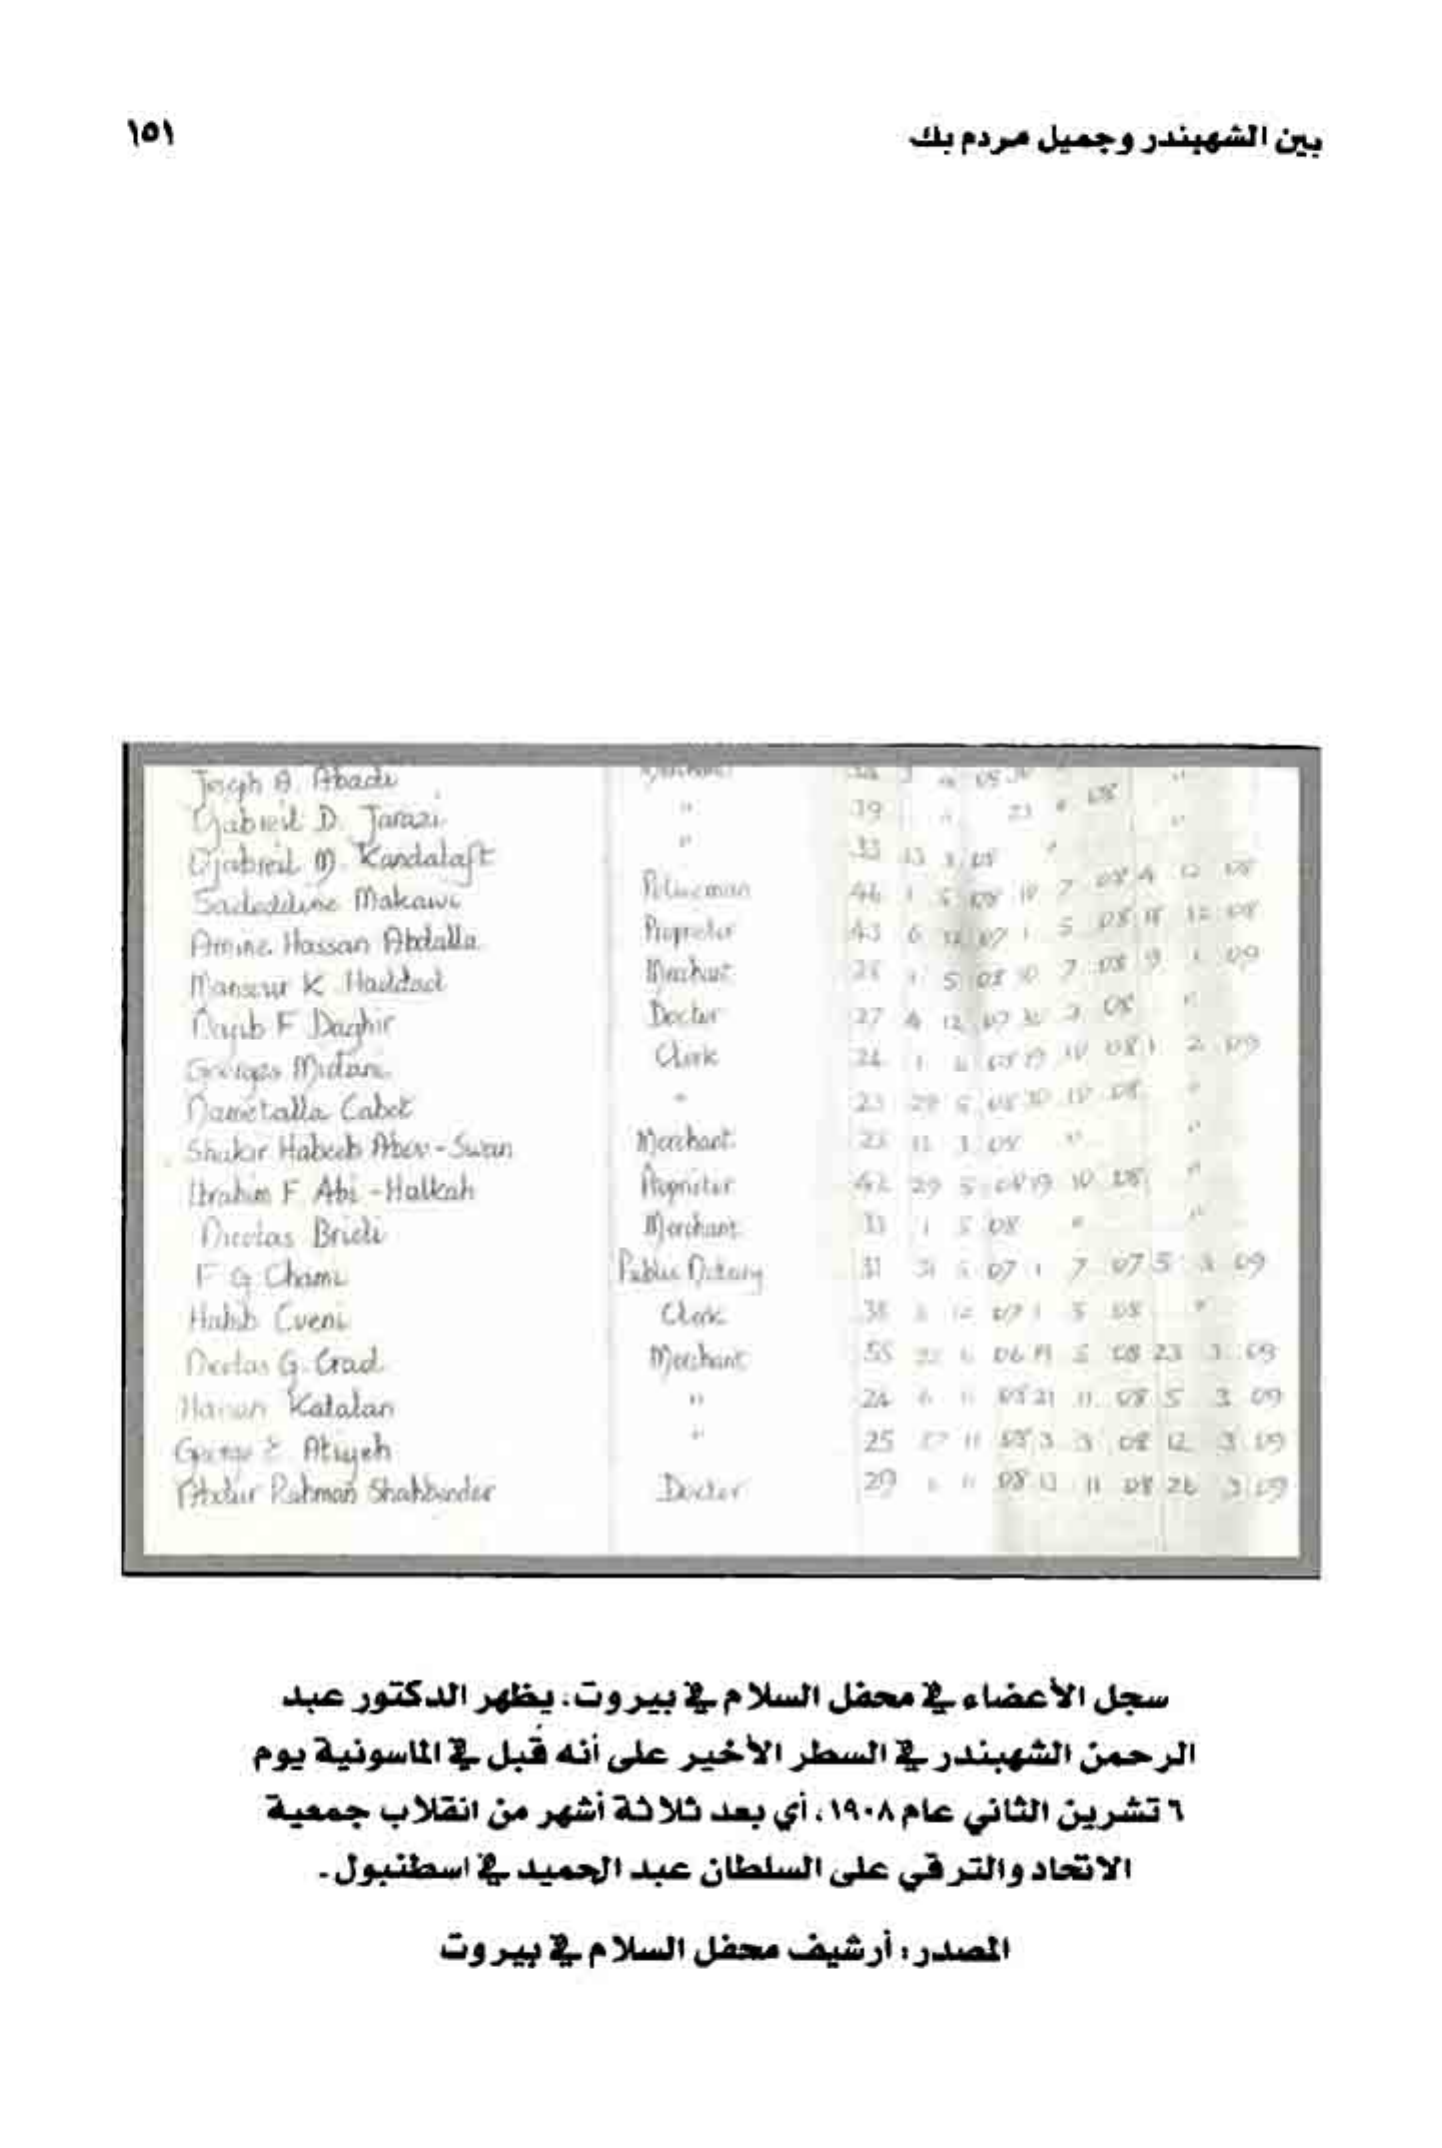 بين الشهبندر وجميل مردم بك
١٥١
Joseph A. Abadi
Gabreil D. Jarazi " 39
Djabreil M. Kandalaft " 33 13 3 08
Sadeddine Makawi Policeman 46 1 5 08 7 08 4 12 08
Amine Hassan Abdalla Proprietor 43 6 12 07 1 5 08 18 12 08
Mansour K. Haddad Merchant 5 08 7 08 9 1 09
Nagib F. Daghir Doctor 27 4 12 07 08 "
Georges Midani Clerk 24 1 10 08 1 2 09
Nametalla Cabet " 23 29 5 08 10 08 "
Shakir Habeeb Abou-Swan Merchant 11 3 08 " "
Ibrahim F. Abi-Halkah Proprietor 42 29 5 08 19 10 08 "
Nicolas Brieli Merchant 33 1 5 08 " "
F. G. Chami Public Notary 31 07 1 7 07 5 3 09
Habib Cueni Clerk 38 12 07 1 5 08 "
Nicolas G. Grad Merchant 55 06 19 5 08 23 3 09
Katalan " 24 6 11 08 21 11 08 5 3 09
George Atiyeh " 25 27 11 08 3 3 08 12 3 09
Abdur Rahman Shahbinder Doctor 29 6 11 08 13 11 08 26 3 09
سجل الأعضاء في محفل السلام في بيروت. يظهر الدكتور عبد
الرحمن الشهبندر في السطر الأخير على أنه قُبل في الماسونية يوم
٦ تشرين الثاني عام ١٩٠٨، أي بعد ثلاثة أشهر من انقلاب جمعية
الاتحاد والترقي على السلطان عبد الحميد في اسطنبول.
المصدر: أرشيف محفل السلام في بيروت